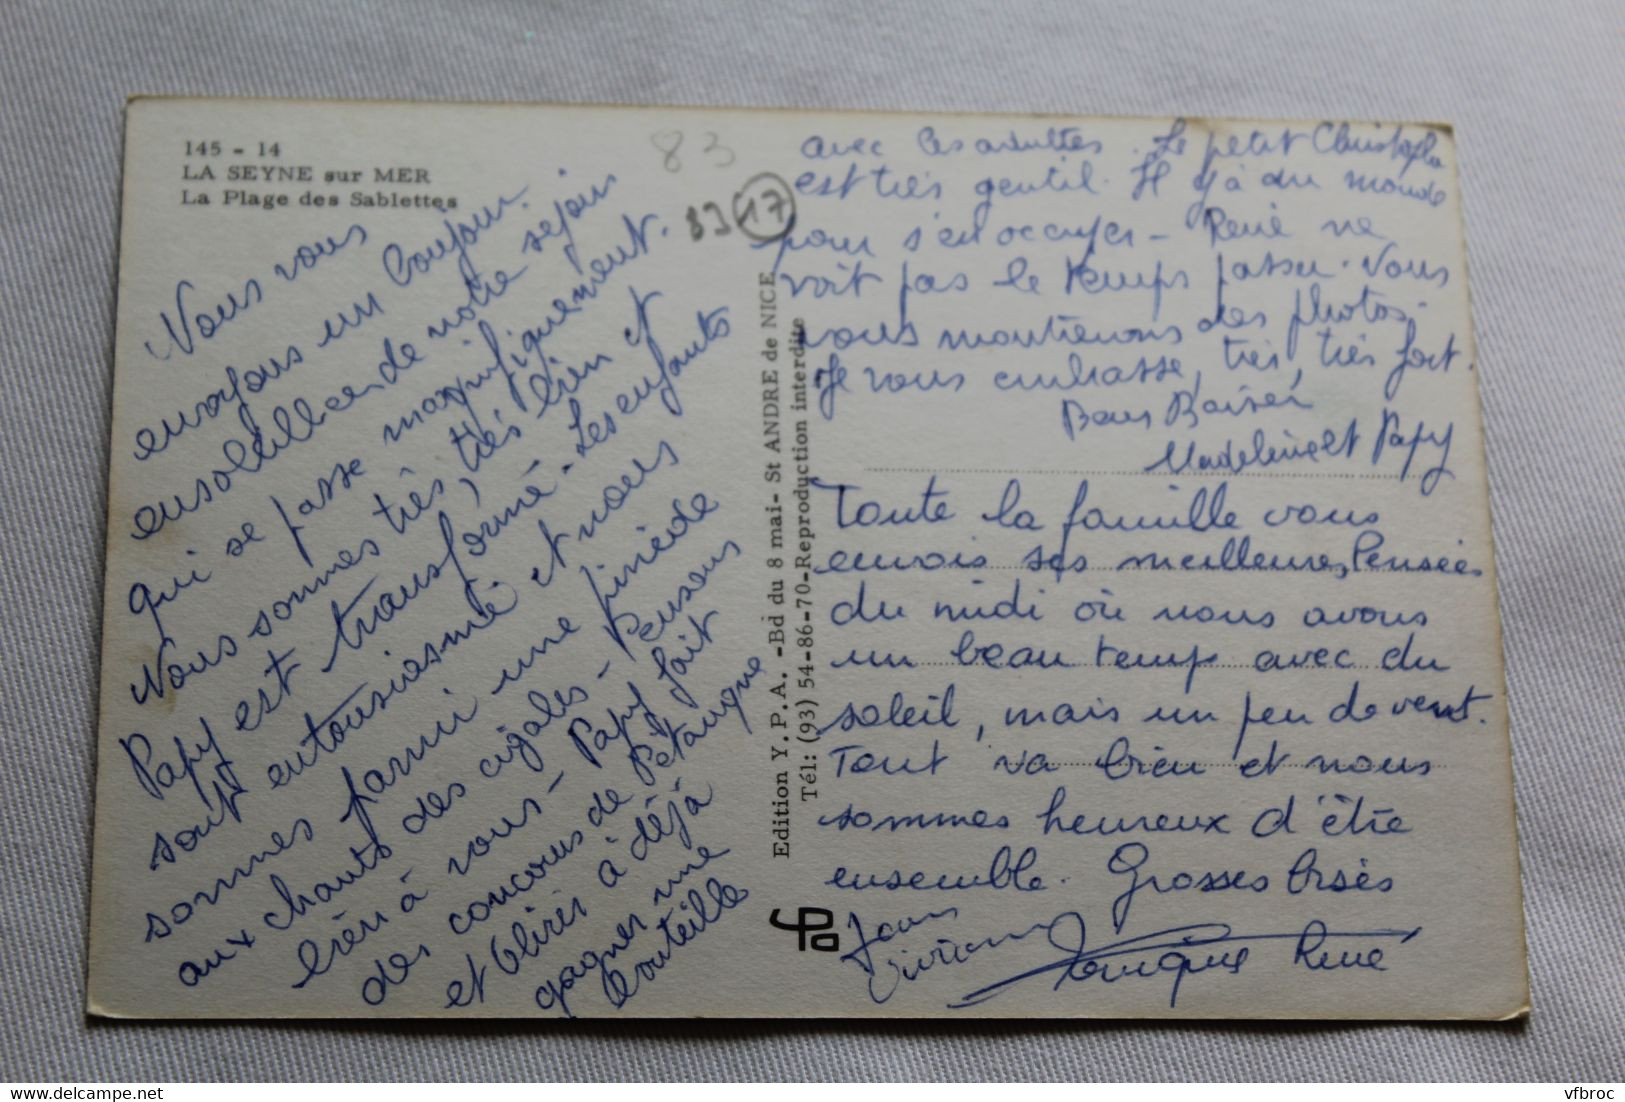 145 - 14
LA SEYNE sur MER
La Plage des Sablettes
83
83 17
Nous vous
envoyons un bonjour
ensoleillé de notre séjour
qui se passe magnifiquement.
Nous sommes très, très bien et
Papy est transformé - Les enfants
sont entousiasmé et nous
sommes parmi une pinède
aux chants des cigales - Pensons
bien à vous - Papy fait
des concours de Pétanque
et Olivier a déjà
gagner une
bouteille
avec les adultes. Le petit Christophe
est très gentil. Il y a du monde
pour s'en occuper - René ne
voit pas le temps passer. Nous
vous montrerons des photos.
Je vous embrasse, très, très fort.
Bons Baisers
Madeleine et Papy
Toute la famille vous
envois ses meilleures Pensées
du midi où nous avons
un beau temp avec du
soleil, mais un peu de vent.
Tout va bien et nous
sommes heureux d'être
ensemble. Grosses bisés
Viviane
René
Edition Y.P.A. -Bd du 8 mai- St ANDRE de NICE
Tél: (93) 54-86-70-Reproduction interdite
vfbroc